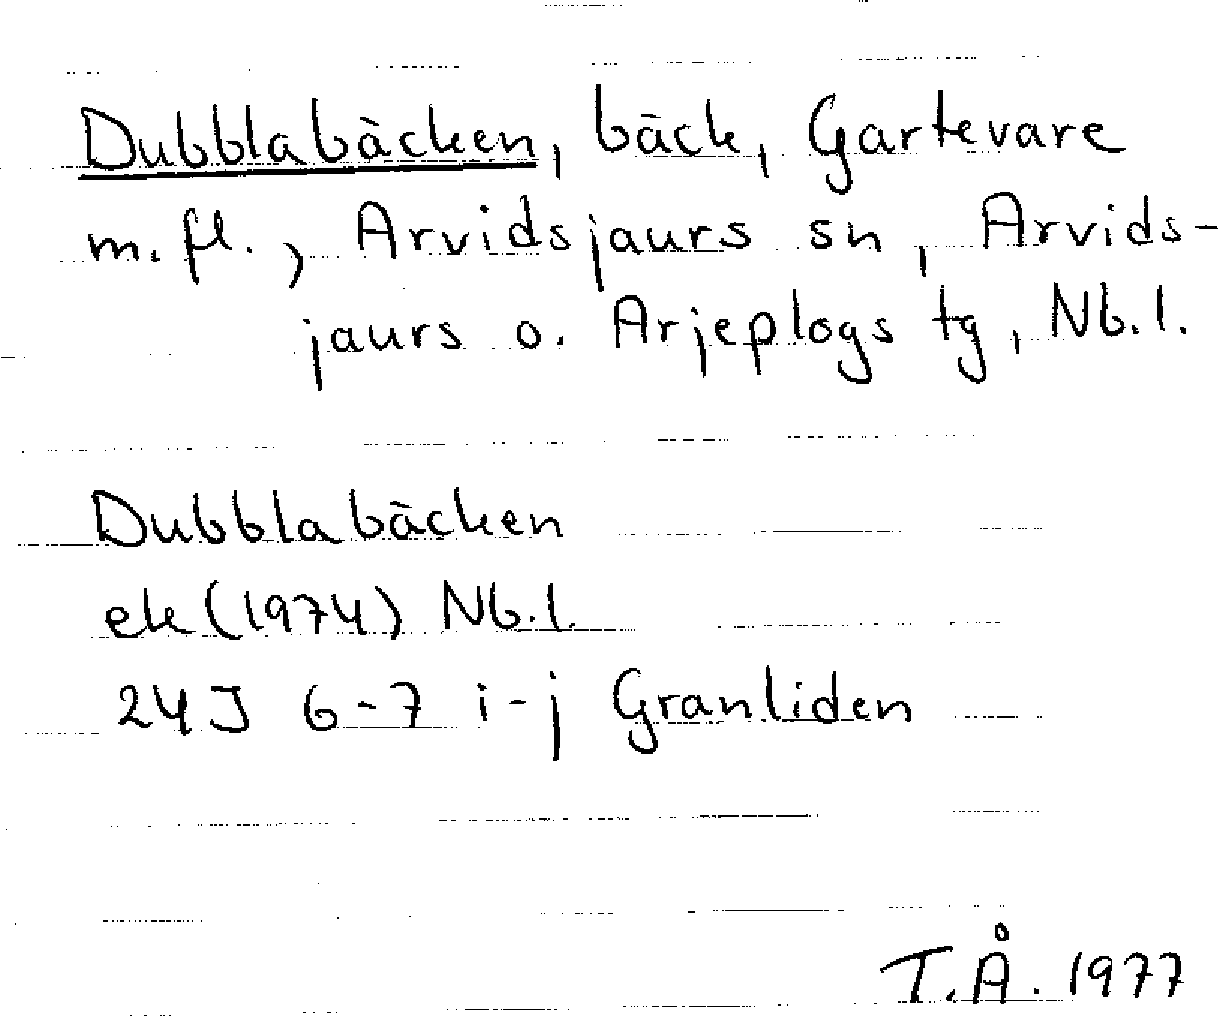 Dubblabäcken, bäck, Gartevare
m.fl., Arvidsjaurs sn, Arvids-
jaurs o. Arjeplogs tg, Nb.l.
Dubblabäcken
ek (1974) Nb.l.
24J 6-7 i-j Granliden
T.Å. 1977